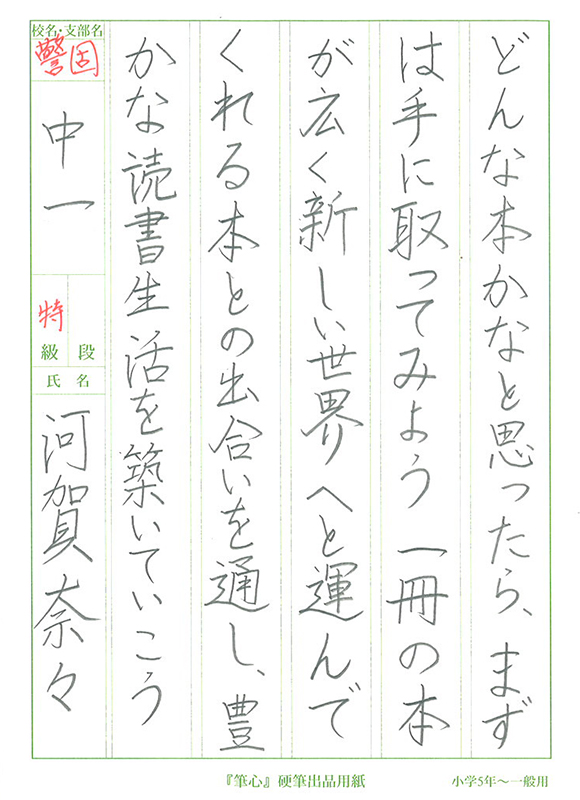 どんな本かなと思ったら、まず
は手に取ってみよう 一冊の本
が広く新しい世界へと運んで
くれる本との出合いを通し、豊
かな読書生活を築いていこう
校名・支部名
警固
中一
特
級 段
氏名
河賀奈々
『筆心』硬筆出品用紙
小学5年～一般用